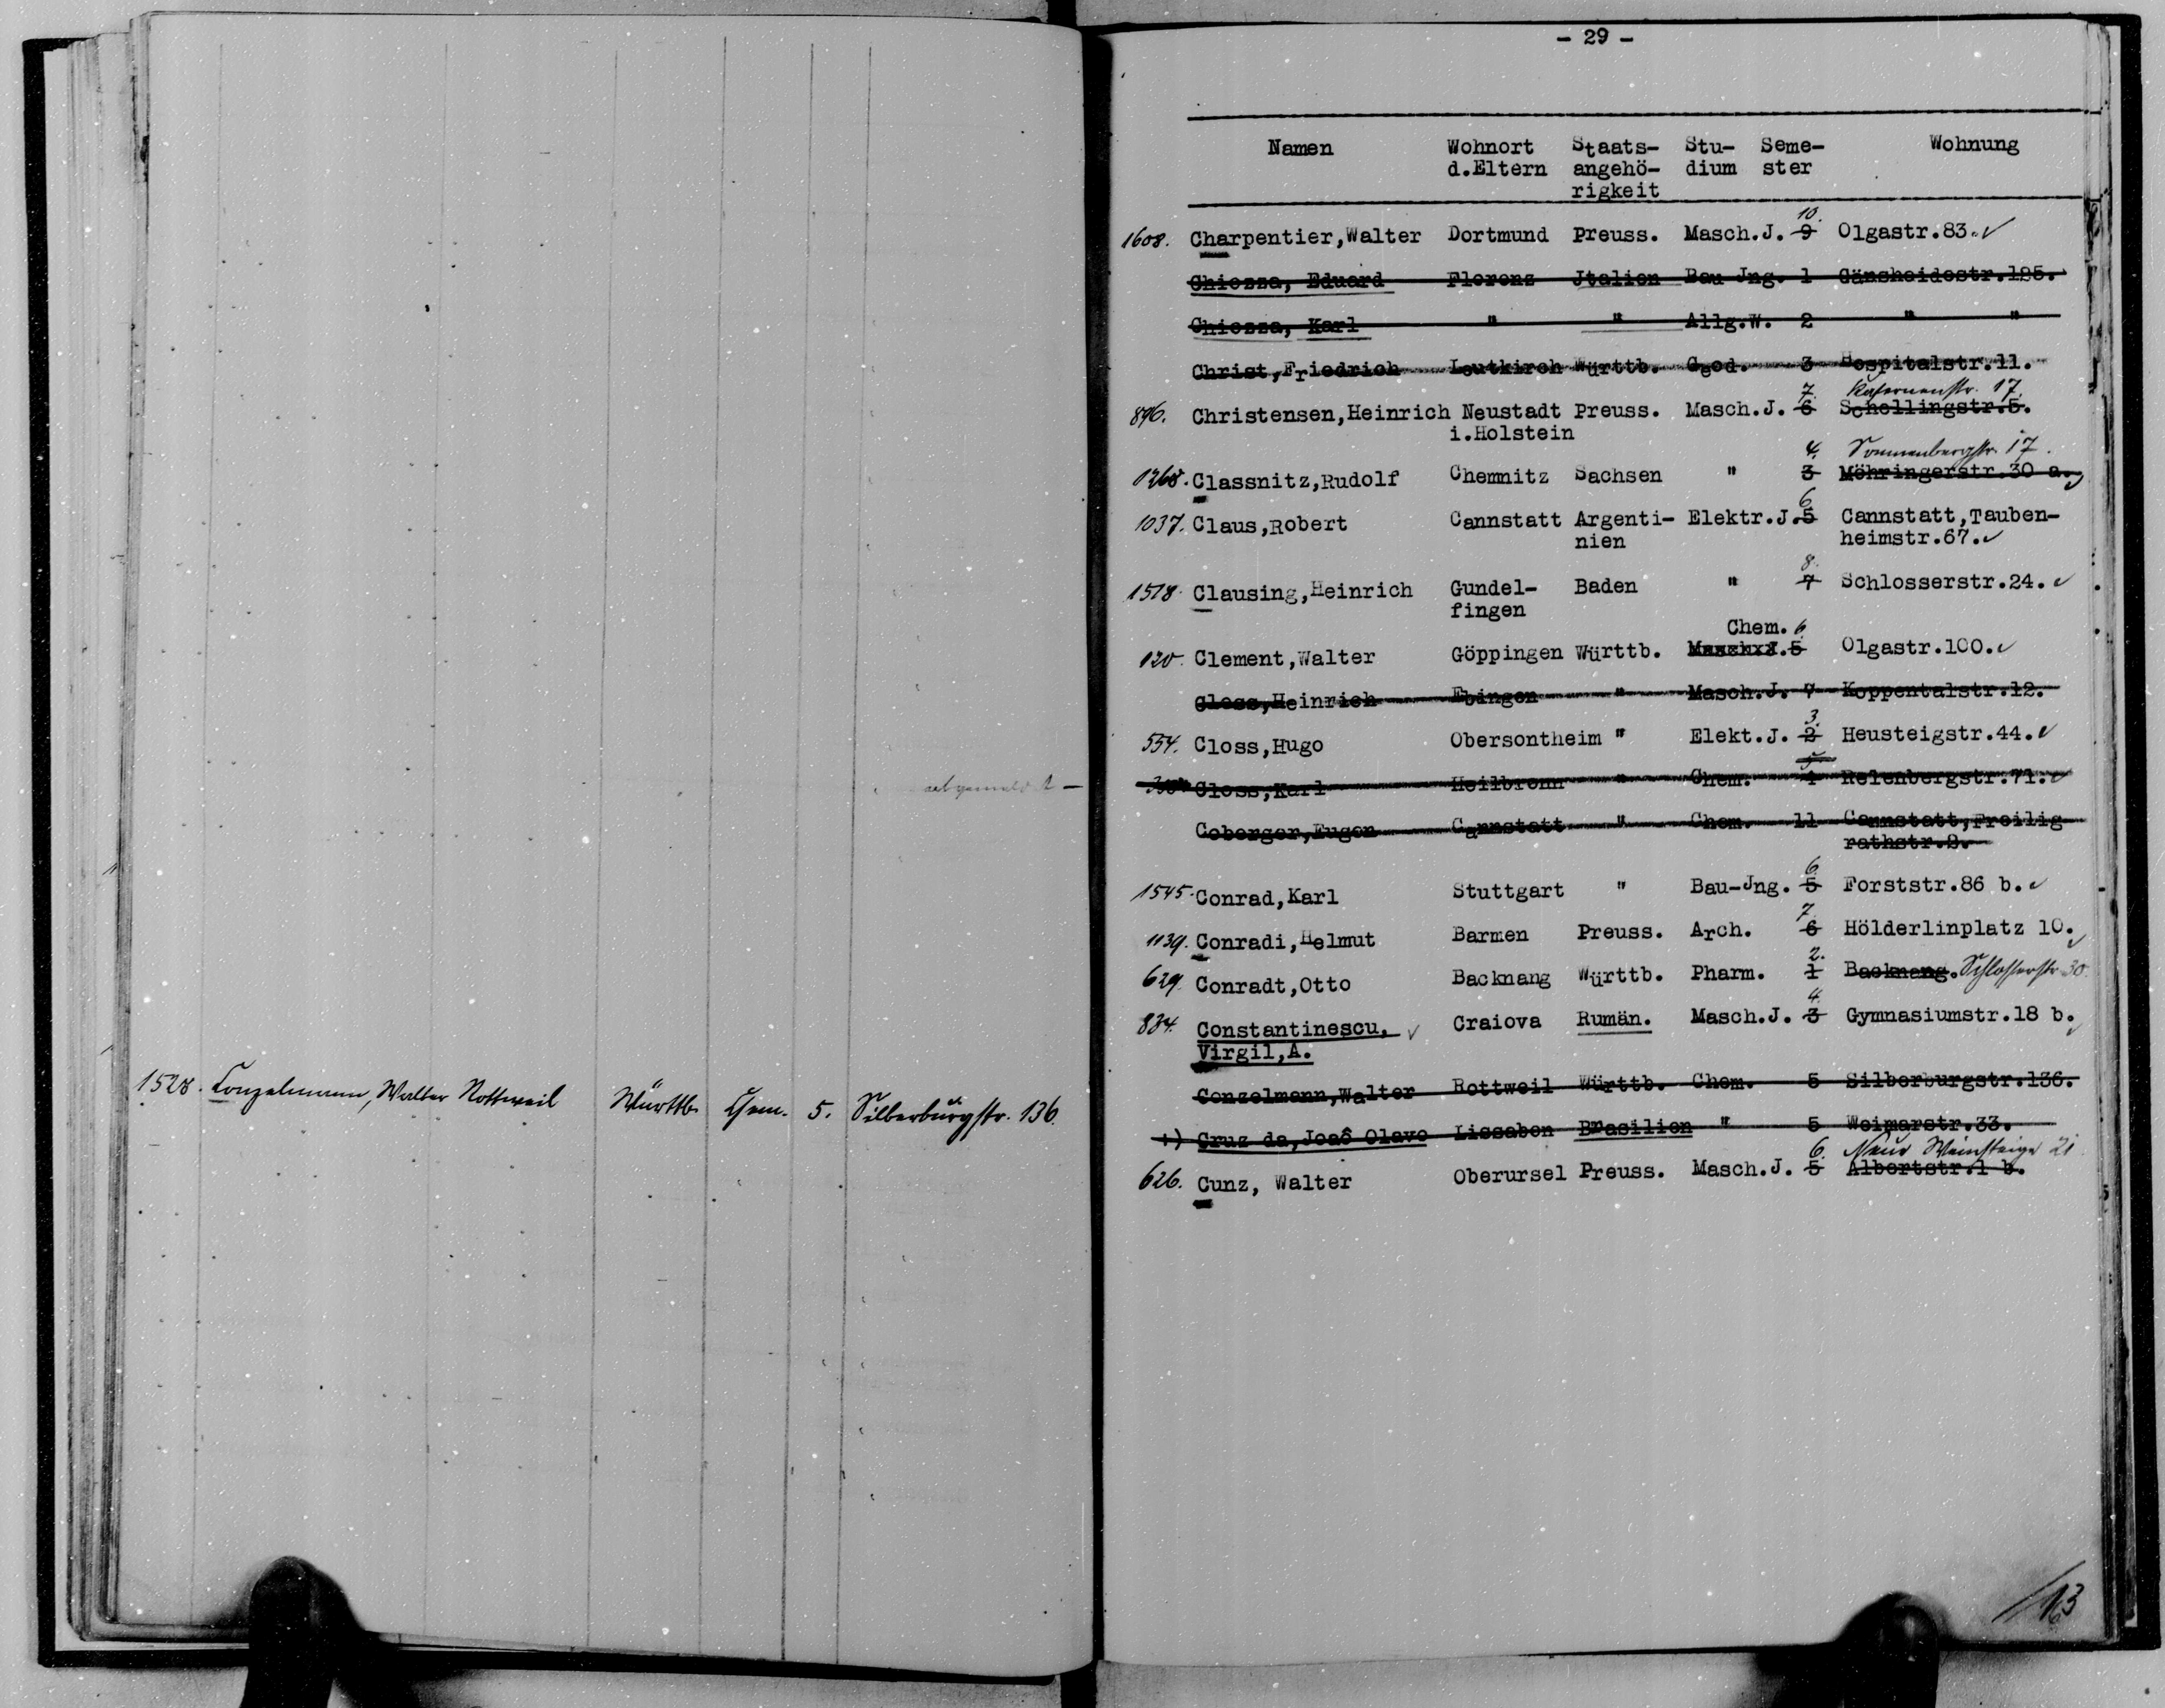 abgemeldet —
1528. Conzelmann, Walter Rottweil Württb. Chem. 5. Silberburgstr. 136.
- 29 -
Namen Wohnort Staats- Stu- Seme- Wohnung
d.Eltern angehö- dium ster
rigkeit
10.
1608. Charpentier,Walter Dortmund Preuss. Masch.J. 9 Olgastr.83.✓
Chiozza, Eduard Florenz Jtalien Bau Jng. 1 Gänsheidestr.125.
Chiozza, Karl " " Allg.W. 2 " "
Christ,Friedrich Leutkirch Württb. Geod. 3 Hospitalstr.11.
7. Kasernenstr. 17.
896. Christensen,Heinrich Neustadt Preuss. Masch.J. 6 Schellingstr.5.
i.Holstein
4. Sonnenbergstr. 17.
1268. Classnitz,Rudolf Chemnitz Sachsen " 3 Möhringerstr.30 a.
6
1037. Claus,Robert Cannstatt Argenti- Elektr.J.5 Cannstatt,Tauben-
nien heimstr.67.✓
8.
1518. Clausing,Heinrich Gundel- Baden " 7 Schlosserstr.24.✓
fingen
Chem. 6.
120. Clement,Walter Göppingen Württb. Masch.J.5 Olgastr.100.✓
Closs,Heinrich Ebingen " Masch.J. 7 Koppentalstr.12.
3.
554. Closs,Hugo Obersontheim " Elekt.J. 2 Heusteigstr.44.✓
5
Closs,Karl Heilbronn " Chem. 4 Relenbergstr.71.✓
Coberger,Eugen Cannstatt " Chem. 11 Cannstatt,Freilig-
rathstr.2.
6
1545. Conrad,Karl Stuttgart " Bau-Jng. 5 Forststr.86 b.✓
7.
1139. Conradi,Helmut Barmen Preuss. Arch. 6 Hölderlinplatz 10.✓
2.
629. Conradt,Otto Backnang Württb. Pharm. 1 Backnang. Schlosserstr 30.
4.
834. Constantinescu, ✓ Craiova Rumän. Masch.J. 3 Gymnasiumstr.18 b.✓
Virgil,A.
Conzelmann,Walter Rottweil Württb. Chem. 5 Silberburgstr.136.
+) Cruz da,Joaô Olavo Lissabon Brasilien " 5 Weimarstr.33.
6. Neue Weinsteige 21
626. Cunz, Walter Oberursel Preuss. Masch.J. 5 Albertstr.1 b.